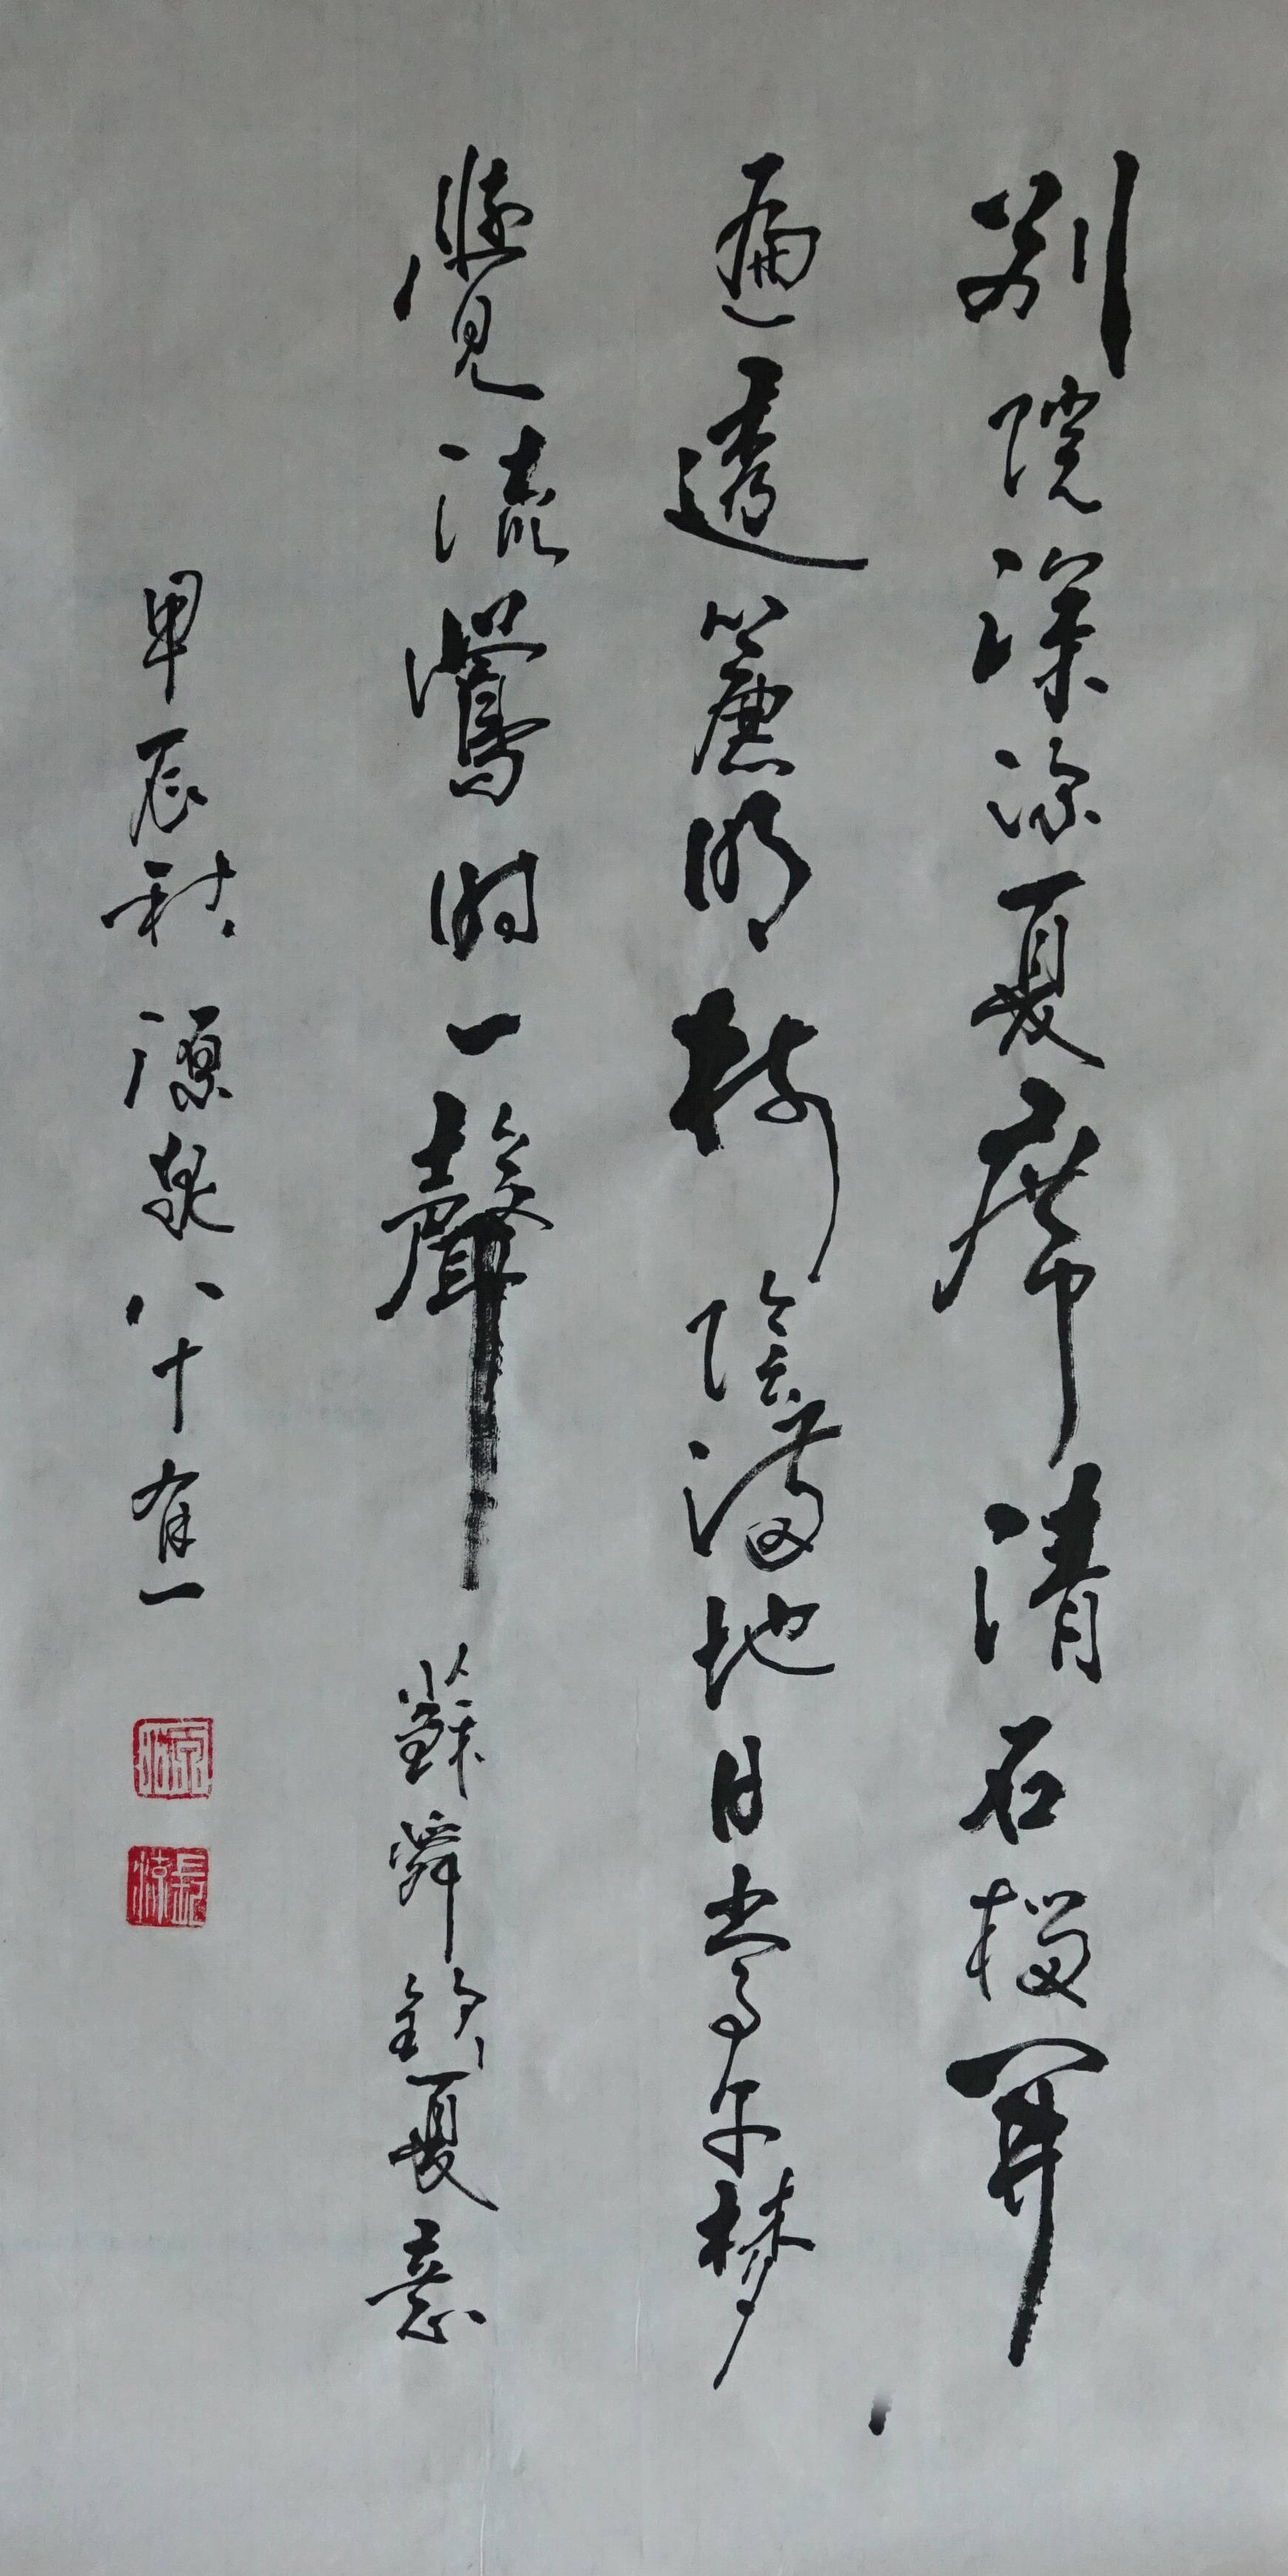 別院深深夏席清石榴開
遍透簾明樹陰滿地日當午梦
覺流鶯時一聲 蘇舜欽夏意
甲辰秋 源泉八十有一